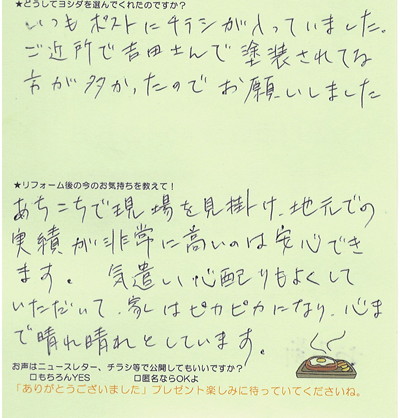 ★どうしてヨシダを選んでくれたのですか?
いつもポストにチラシが入っていました。
ご近所で吉田さんで塗装されてる
方が多かったのでお願いしました
★リフォーム後の今のお気持ちを教えて!
あちこちで現場を見掛け、地元での
実績が非常に高いのは安心でき
ます。気遣い心配りもよくして
いただいて、家はピカピカになり、心ま
で晴れ晴れとしています。
お声はニュースレター、チラシ等で公開してもいいですか?
□もちろんYES □匿名ならOKよ
「ありがとうございました」プレゼント楽しみに待っていてくださいね。